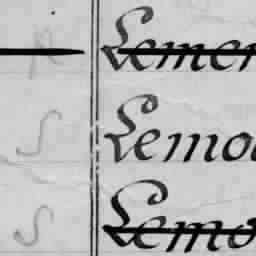 R Lemer
S Lemo
S Lemo